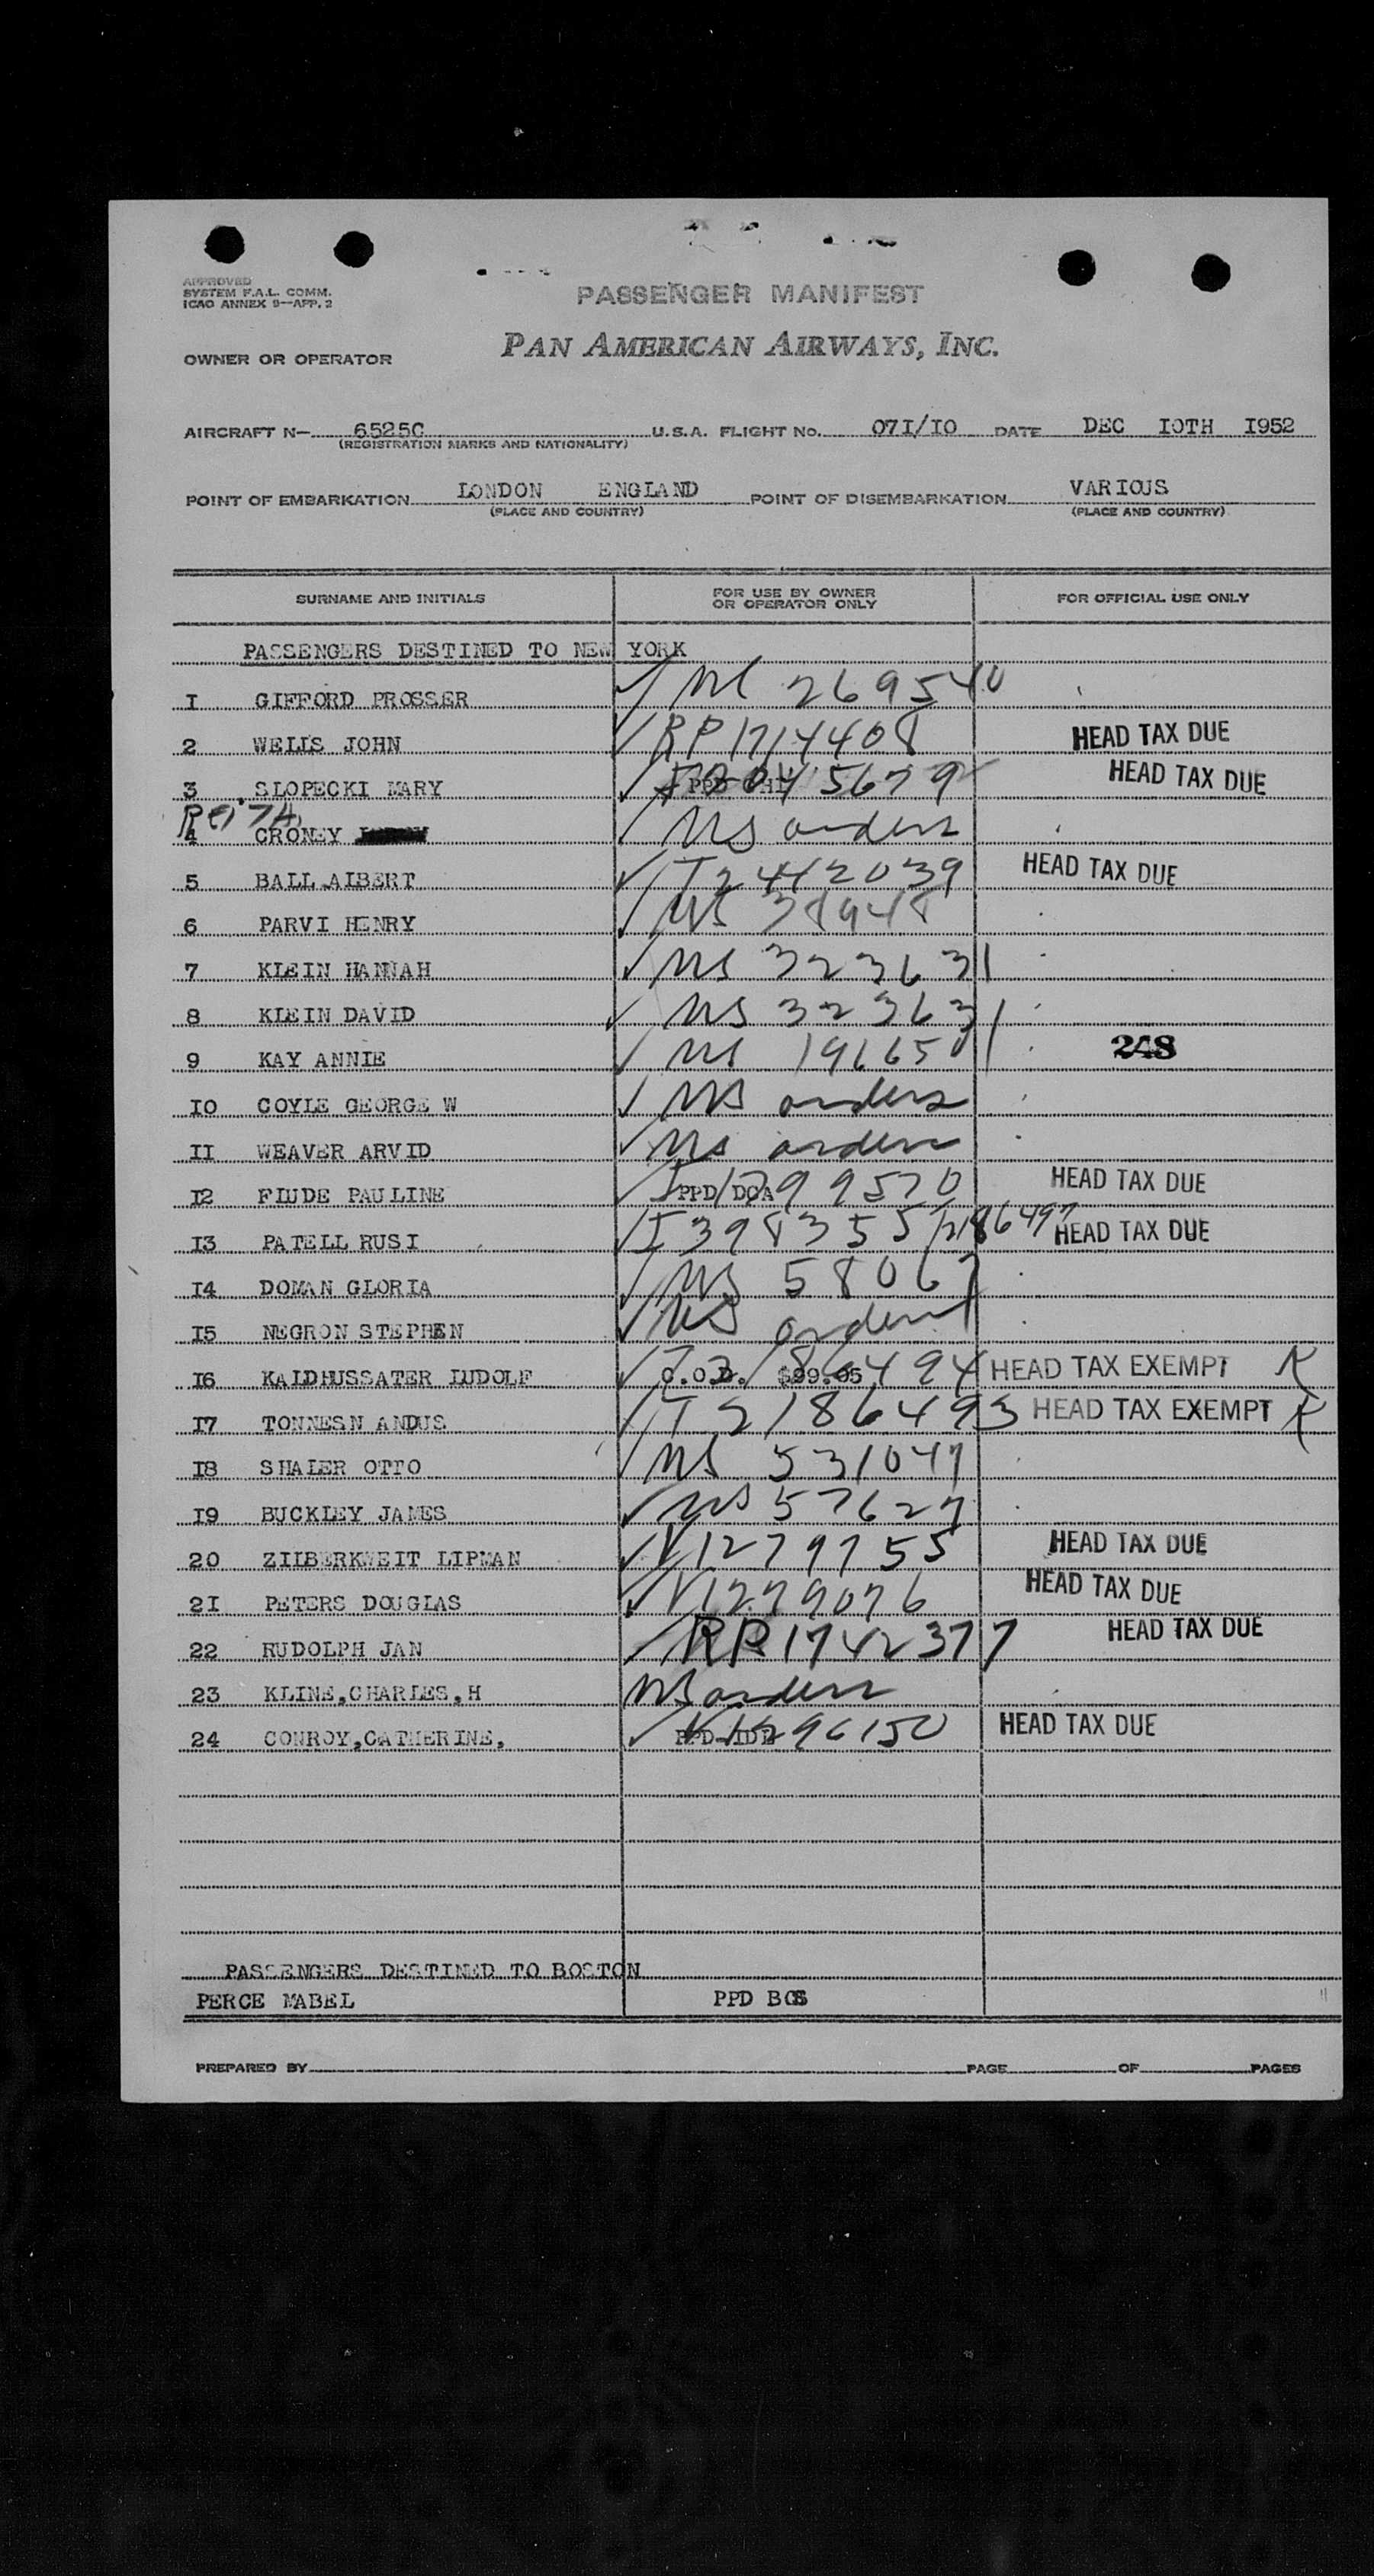 APPROVED
SYSTEM F.A.L. COMM.
ICAO ANNEX 9—APP. 2
PASSENGER MANIFEST
PAN AMERICAN AIRWAYS, INC.
OWNER OR OPERATOR
AIRCRAFT N— 6525C U.S.A. FLIGHT No. 07I/IO DATE DEC IOTH I952
(REGISTRATION MARKS AND NATIONALITY)
POINT OF EMBARKATION LONDON ENGLAND POINT OF DISEMBARKATION VARIOUS
(PLACE AND COUNTRY) (PLACE AND COUNTRY)
SURNAME AND INITIALS FOR USE BY OWNER OR OPERATOR ONLY FOR OFFICIAL USE ONLY
PASSENGERS DESTINED TO NEW YORK
I GIFFORD PROSSER 269540
2 WELLS JOHN RP1714408 HEAD TAX DUE
3 SLOPECKI MARY HEAD TAX DUE
4 CRONEY US orders
5 BALL ALBERT T2442039 HEAD TAX DUE
6 PARVI HENRY US 38948
7 KLEIN HANNAH US 323631
8 KLEIN DAVID US 323631
9 KAY ANNIE 248
IO COYLE GEORGE W US orders
II WEAVER ARVID US orders
I2 FLUDE PAULINE PPD/DCA 99570 HEAD TAX DUE
I3 PATELL RUSI I398355/2186497 HEAD TAX DUE
I4 DOMAN GLORIA US 58067
I5 NEGRON STEPHEN US orders
I6 KALDHUSSATER LUDOLF C.O.D. $99.05 HEAD TAX EXEMPT
I7 TONNESN ANDUS T2186493 HEAD TAX EXEMPT
I8 SHALER OTTO US 531047
I9 BUCKLEY JAMES US 57627
20 ZILBERKWEIT LIPMAN V1279755 HEAD TAX DUE
2I PETERS DOUGLAS V1279076 HEAD TAX DUE
22 RUDOLPH JAN RP1742377 HEAD TAX DUE
23 KLINE,CHARLES,H US orders
24 CONROY,CATHERINE, HEAD TAX DUE
PASSENGERS DESTINED TO BOSTON
PERCE MABEL PPD BOS
PREPARED BY PAGE OF PAGES